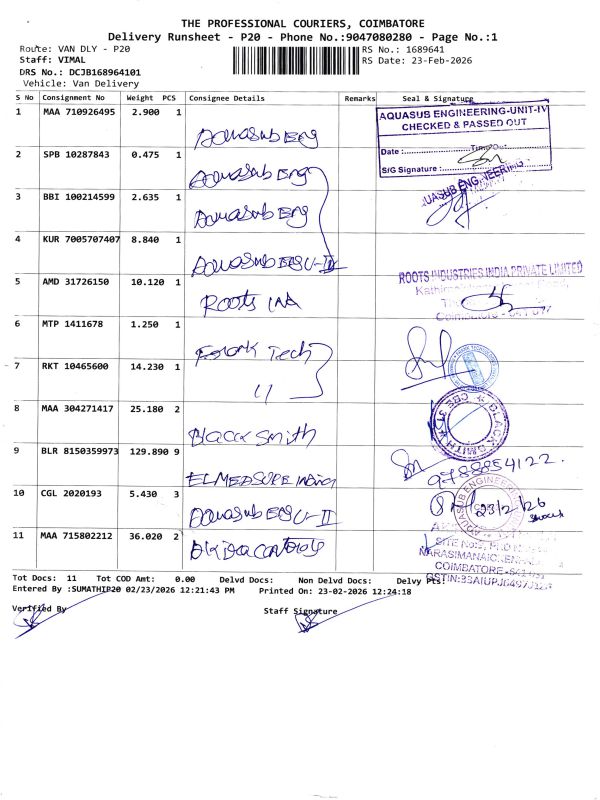 THE PROFESSIONAL COURIERS, COIMBATORE
Delivery Runsheet - P20 - Phone No.:9047080280 - Page No.:1
Route: VAN DLY - P20 RS No.: 1689641
Staff: VIMAL RS Date: 23-Feb-2026
DRS No.: DCJB168964101
Vehicle: Van Delivery
S No Consignment No Weight PCS Consignee Details Remarks Seal & Signature
1 MAA 710926495 2.900 1 Aquasub Eng
AQUASUB ENGINEERING-UNIT-IV
CHECKED & PASSED OUT
Date : Time Out
SIG Signature :
2 SPB 10287843 0.475 1 Aquasub Eng
AQUASUB ENGINEERING
3 BBI 100214599 2.635 1 Aquasub Eng
4 KUR 7005707407 8.840 1 Aquasub
5 AMD 31726150 10.120 1 Roots
ROOTS INDUSTRIES INDIA PRIVATE LIMITED
6 MTP 1411678 1.250 1 Tech
7 RKT 10465600 14.230 1 "
8 MAA 304271417 25.180 2 Black Smith
BLACK SMITH
9 BLR 8150359973 129.890 9 ELMEASURE India
9788854122.
10 CGL 2020193 5.430 3 Aquasub U-II
AQUASUB ENGINEERING
23/2/26
11 MAA 715802212 36.020 2
COIMBATORE
Tot Docs: 11 Tot COD Amt: 0.00 Delvd Docs: Non Delvd Docs: Delvy Pts:
Entered By :SUMATHIP20 02/23/2026 12:21:43 PM Printed On: 23-02-2026 12:24:18
Verified By Staff Signature